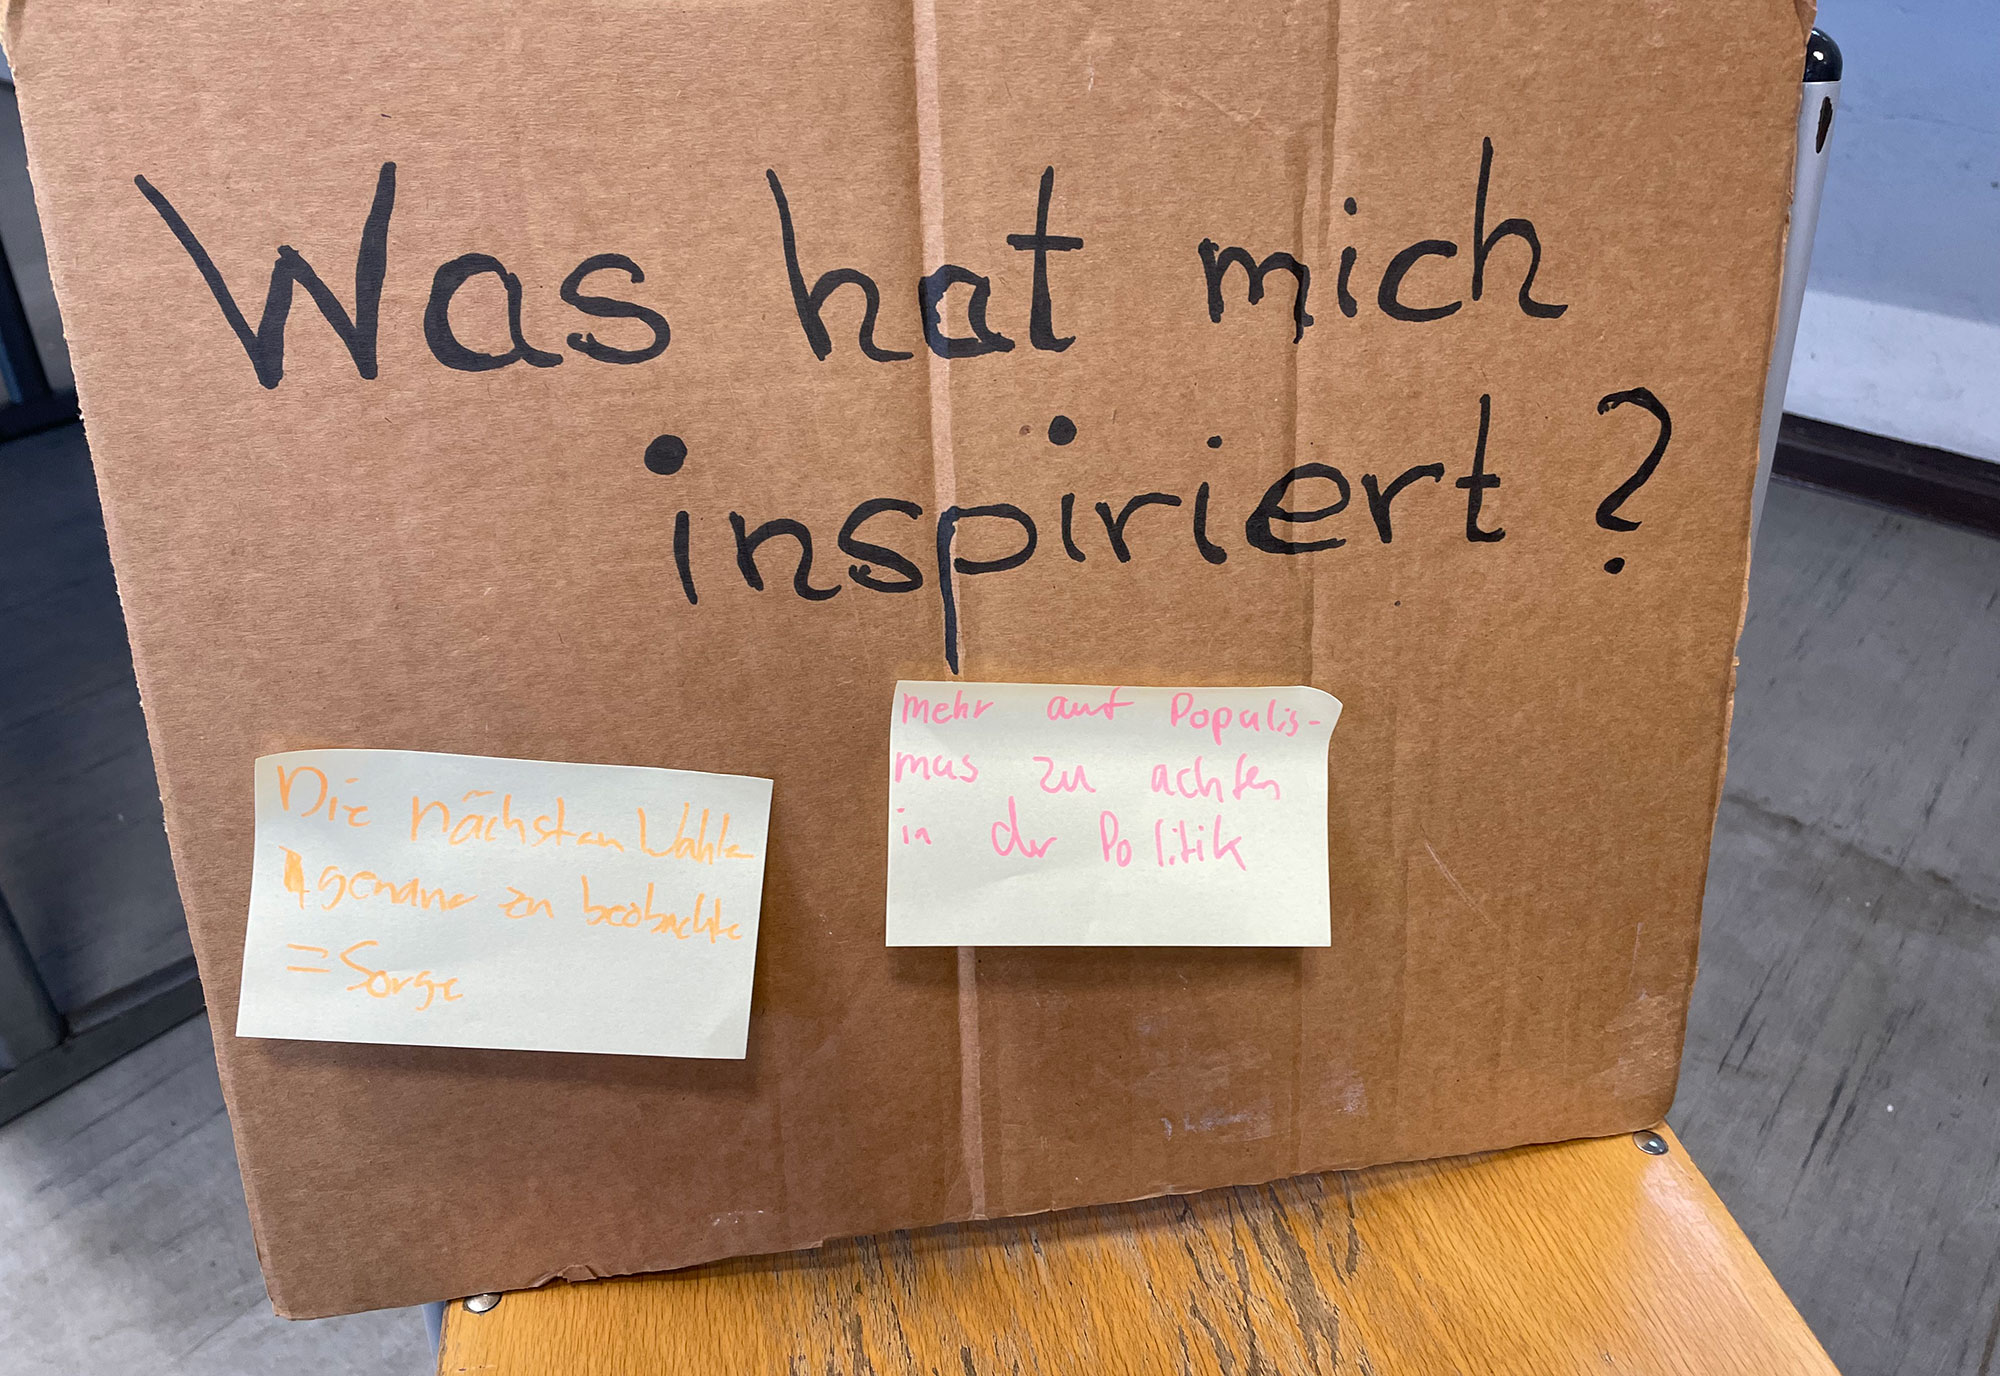 Was hat mich
inspiriert?
Die nächsten Wahlen
genaue zu beobachten
= Sorge
mehr auf Populis-
mus zu achten
in der Politik